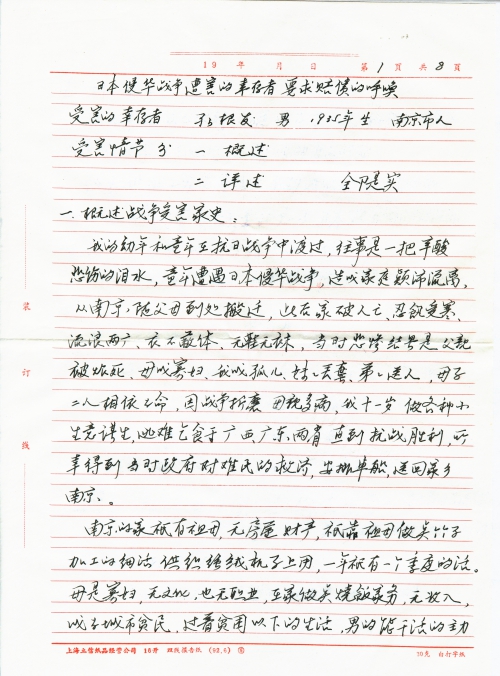 19 年 月 日 第 1 頁 共 8 頁
日本侵华战争遭害的幸存者要求赔偿的呼唤
受害的幸存者 根发 男 1935年生 南京市人
受害情节 分 一 概述
二 详述 全部是实
一.概述战争受害家史:
我的幼年和童年在抗日战争中渡过,往事是一把辛酸
悲伤的泪水,童年遭遇日本侵华战争,造成家庭颠沛流离,
从南京随父母到处搬迁,此在家破人亡、忍饥受寒、
流浪两广、衣不蔽体、无鞋无袜,当时悲惨结果是父亲
被炸死、母成寡妇、我成孤儿、妹丢弃、弟送人,母子
二人相依为命,因战争折磨母亲多病,我十一岁做各种小
生意谋生,逃难乞食于广西广东两省直到抗战胜利,所
幸得到当时政府对难民的救济,安排车船,送回家乡
南京.。
南京的家祇有祖母,无房屋财产,祇靠祖母做些竹子
加工的细活供织缎绒机子上用,一年祇有一个季度的活。
母是寡妇,无文化,也无职业,在家做些烧饭家务,无收入,
成了城市贫民,过着贫困以下的生活,男的能干活的主动
装
订
线
上海立信纸品经营公司 16开 双线报告纸 (92.6) ⑥ 70克 白打字纸